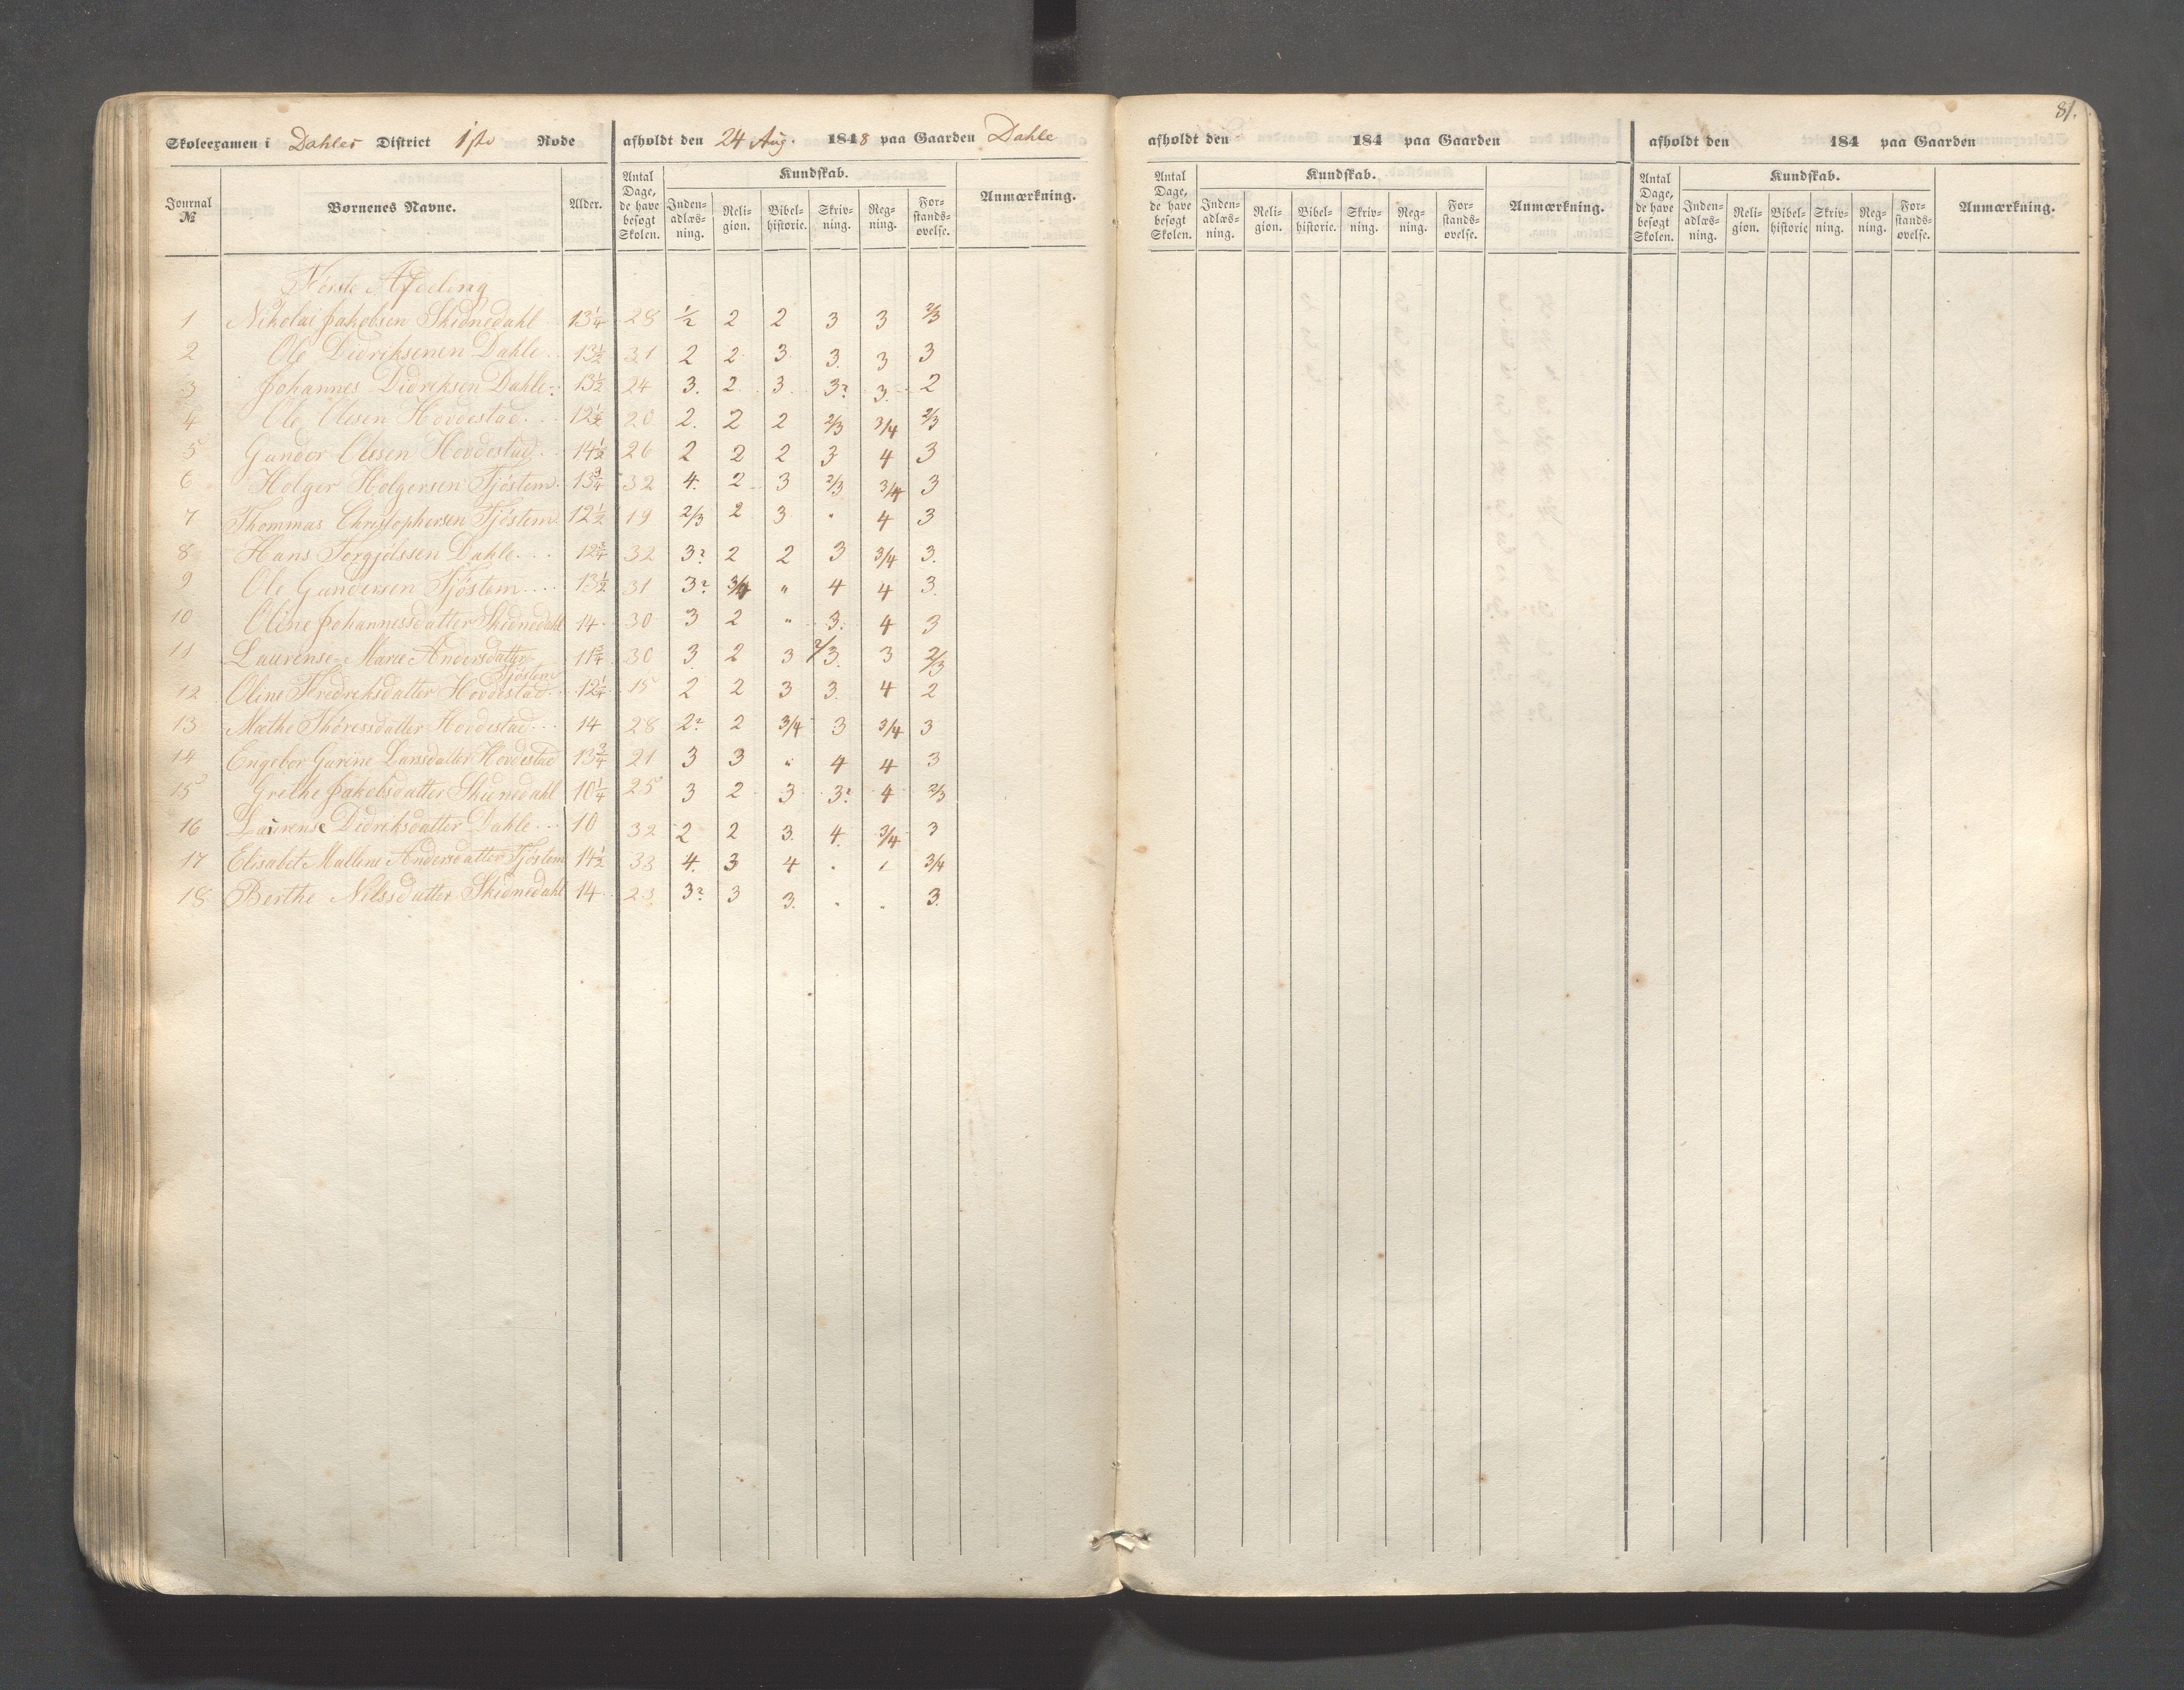 Skoleexamen i Dahles District 1ste Rode afholdt den 24 Aug. 1848 paa Gaarden Dahle
Journal № Børnenes Navne. Alder. Antal Dage, de have besøgt Skolen. Kundskab. Inden- adlæs- ning. Reli- gion. Bibel- historie. Skriv- ning. Reg- ning. For- stands- øvelse. Anmærkning.
Første Afdeling
1 Nikolai Jakobsen Skednedahl 13 1/4 28 1/2 2 2 3 3 2/3
2 Ole Didriksenen Dahle 13 1/2 31 2 2 3 3 3 3
3 Johannes Didriksen Dahle 13 1/2 24 3 2 3 3? 3 2
4 Ole Olesen Hovdestad 12 1/2 20 2 2 2 2/3 3/4 2/3
5 Gunder Olesen Hovdestad 14 1/2 26 2 2 2 3 4 3
6 Holger Holgersen Tjöstem 13 3/4 32 4 2 3 2/3 3/4 3
7 Thommas Christophersen Tjöstem 12 1/2 19 2/3 2 3 " 4 3
8 Hans Torgjölssen Dahle 12 3/4 32 3? 2 2 3 3/4 3
9 Ole Gundersen Tjöstem 13 1/2 31 3? 3/4 " 4 4 3
10 Oline Johannessdatter Skednedahl 14 30 3 2 " 3 4 3
11 Laurense Marie Andersdatter 11 3/4 30 3 2 3 2/3 3 2/3
Tjöstem
12 Oline Fredriksdatter Hovdestad 12 1/4 15 2 2 3 3 4 2
13 Mæthe Thöresdatter Hovdestad 14 28 2? 2 3/4 3 3/4 3
14 Engebor Gurine Larsdatter Hovdestad 13 3/4 21 3 3 " 4 4 3
15 Grethe Jakobsdatter Skednedahl 10 1/4 25 3 2 3 3? 4 2/3
16 Laurense Didriksdatter Dahle 10 32 2 2 3 4 3/4 3
17 Elisabet Mallene Andersdatter Tjöstem 14 1/2 33 4 3 4 " " 3/4
18 Berthe Nilssdatter Skednedahl 14 23 3? 3 3 " " 3
81.
afholdt den 184 paa Gaarden
Antal Dage, de have besøgt Skolen. Kundskab. Inden- adlæs- ning. Reli- gion. Bibel- historie. Skriv- ning. Reg- ning. For- stands- øvelse. Anmærkning.
afholdt den 184 paa Gaarden
Antal Dage, de have besøgt Skolen. Kundskab. Inden- adlæs- ning. Reli- gion. Bibel- historie Skriv- ning. Reg- ning. For- stands- øvelse. Anmærkning.